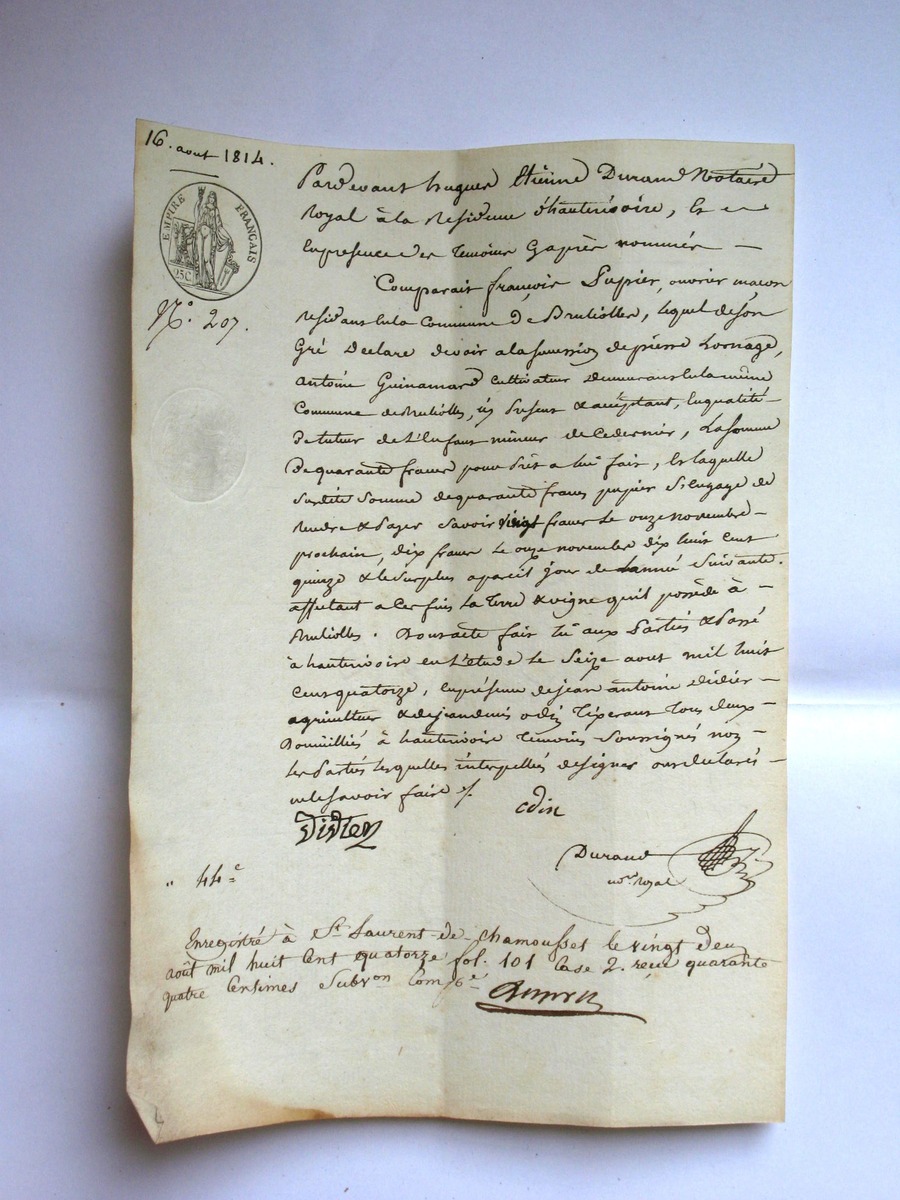 16. aout 1814.
EMPIRE FRANCAIS
25C
N.o 207.
Pardevant hugues Etienne Durand Notaire
Royal à la Residence d'hauterivoire, Et
En presence des temoins Cy après nommés –
Comparait françois Papier, ouvrier maçon
Residant en la Commune de Brulioles, lequel de son
Gré Declare devoir a la succession de pierre Lornage,
antoine Guinamard Cultivateur Demeurant en la même
Commune de brulioles, ici present & acceptant, En qualité
de tuteur de L'Enfant mineur de Ce dernier, La Somme
De quarante francs pour prêt a lui fait, Et laquelle
Susdite Somme de quarante francs papier S'engage de
rendre & payer Savoir vingt francs Le onze novembre –
prochain, dix francs Le onze novembre dix huit cent
quinze & le Surplus a pareil jour de Lanné Suivante.
affectant a Ces fins La terre & vigne qu'il possède à –
brulioles. Dont acte fait Lu aux Parties & Passé
à hauterivoire en L'étude Le Seize aout mil huit
Cent quatorze, En présence de jean antoine Didier –
agriculteur & de jean denis odin tisserant tous deux –
Domicilliés à hauterivoire temoins Soussignés non
Les Parties Lesquelles interpellés de signer ont declarés –
ne le Savoir faire ./.
Didier
odin
Durand
no.re Royal
" 44=c
Enregistré à St Laurent de chamousset le vingt deux
août mil huit Cent quatorze fol. 101 Case 2. reçu quarante
quatre Centimes Subv.on Comp.se